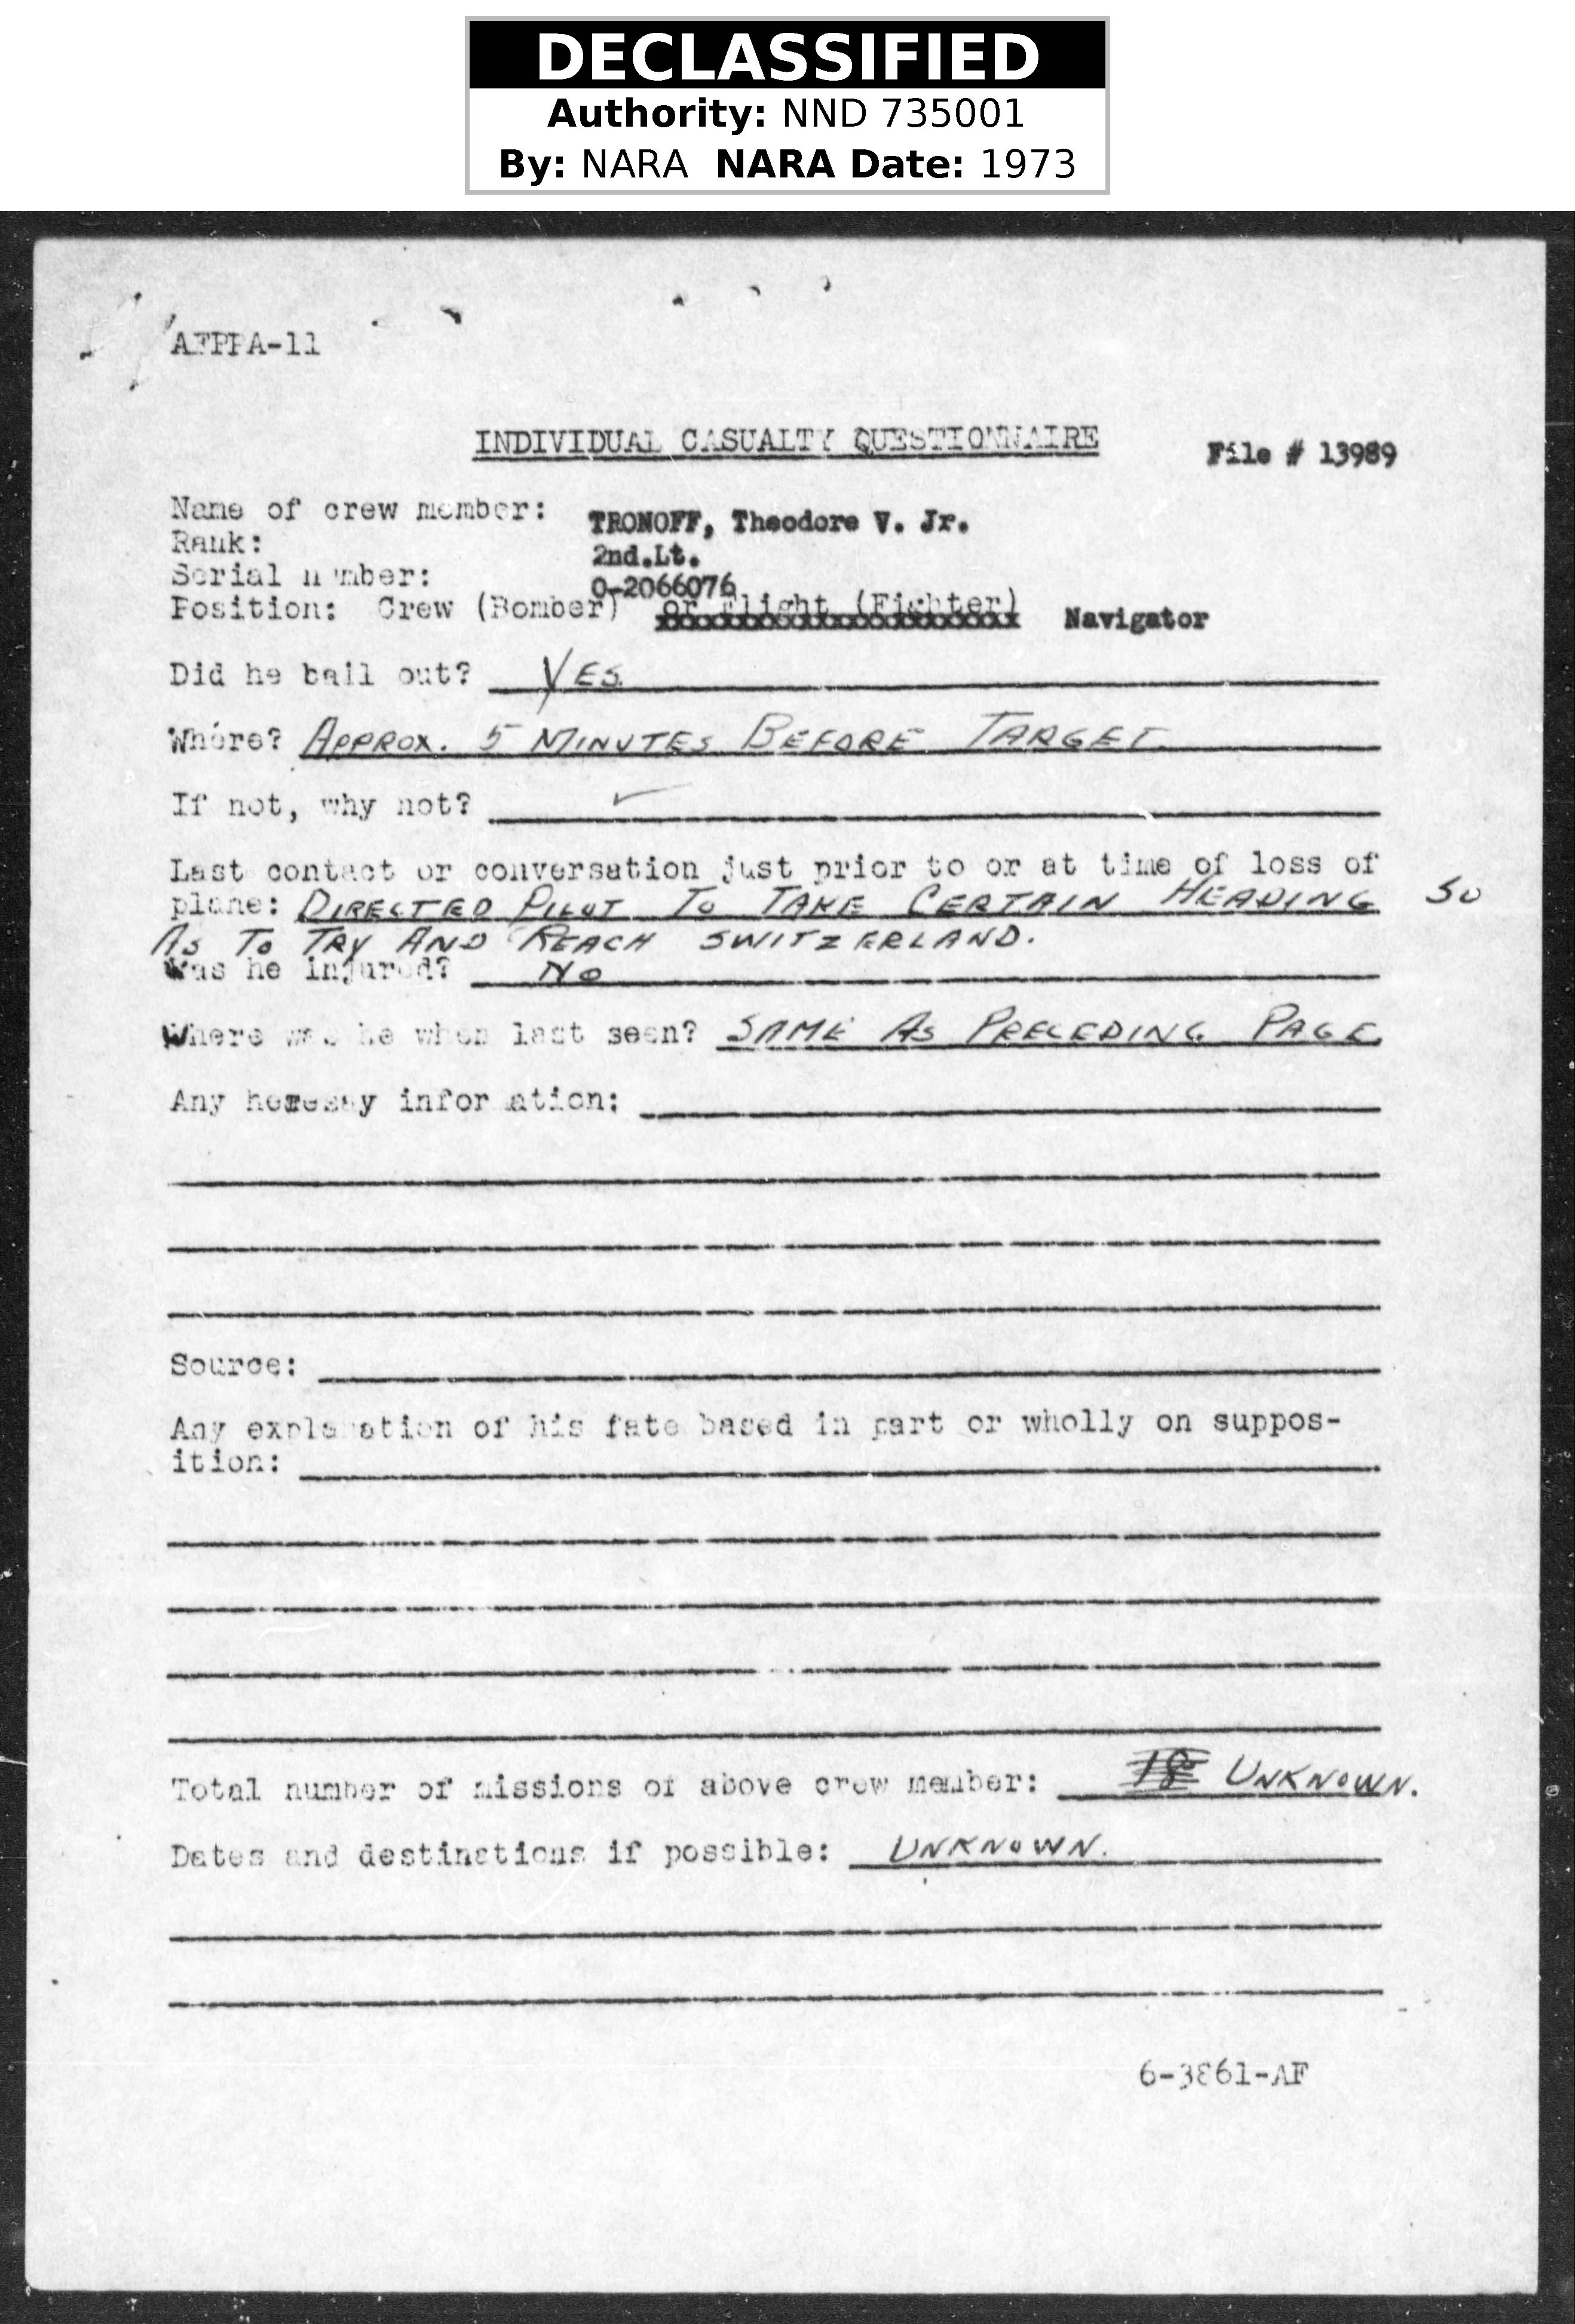 DECLASSIFIED
Authority: NND 735001
By: NARA NARA Date: 1973
AFPPA-11
INDIVIDUAL CASUALTY QUESTIONNAIRE
File # 13989
Name of crew member: TRONOFF, Theodore V. Jr.
Rank: 2nd.Lt.
Serial number: O-2066076
Position: Crew (Bomber) or Flight (Fighter) Navigator
Did he bail out? YES
Where? APPROX. 5 MINUTES BEFORE TARGET.
If not, why not? ✓
Last contact or conversation just prior to or at time of loss of
plane: DIRECTED PILOT TO TAKE CERTAIN HEADING SO
AS TO TRY AND REACH SWITZERLAND.
Was he injured? NO
Where was he when last seen? SAME AS PRECEDING PAGE.
Any hearsay information:
Source:
Any explanation of his fate based in part or wholly on suppos-
ition:
Total number of missions of above crew member: 18 UNKNOWN.
Dates and destinations if possible: UNKNOWN.
6-3861-AF